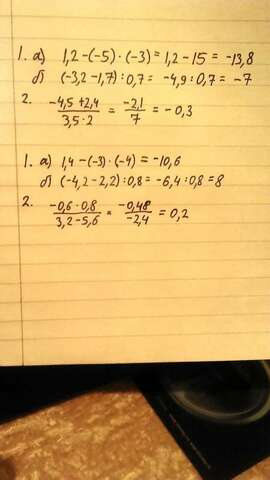 1. а) 1,2 -(-5) · (-3) = 1,2 - 15 = -13,8
б) (-3,2 - 1,7) : 0,7 = -4,9 : 0,7 = -7
2. (-4,5 + 2,4)/(3,5 · 2) = -2,1/7 = -0,3
1. а) 1,4 - (-3) · (-4) = -10,6
б) (-4,2 - 2,2) : 0,8 = -6,4 : 0,8 = 8
2. (-0,6 · 0,8)/(3,2 - 5,6) = -0,48/-2,4 = 0,2